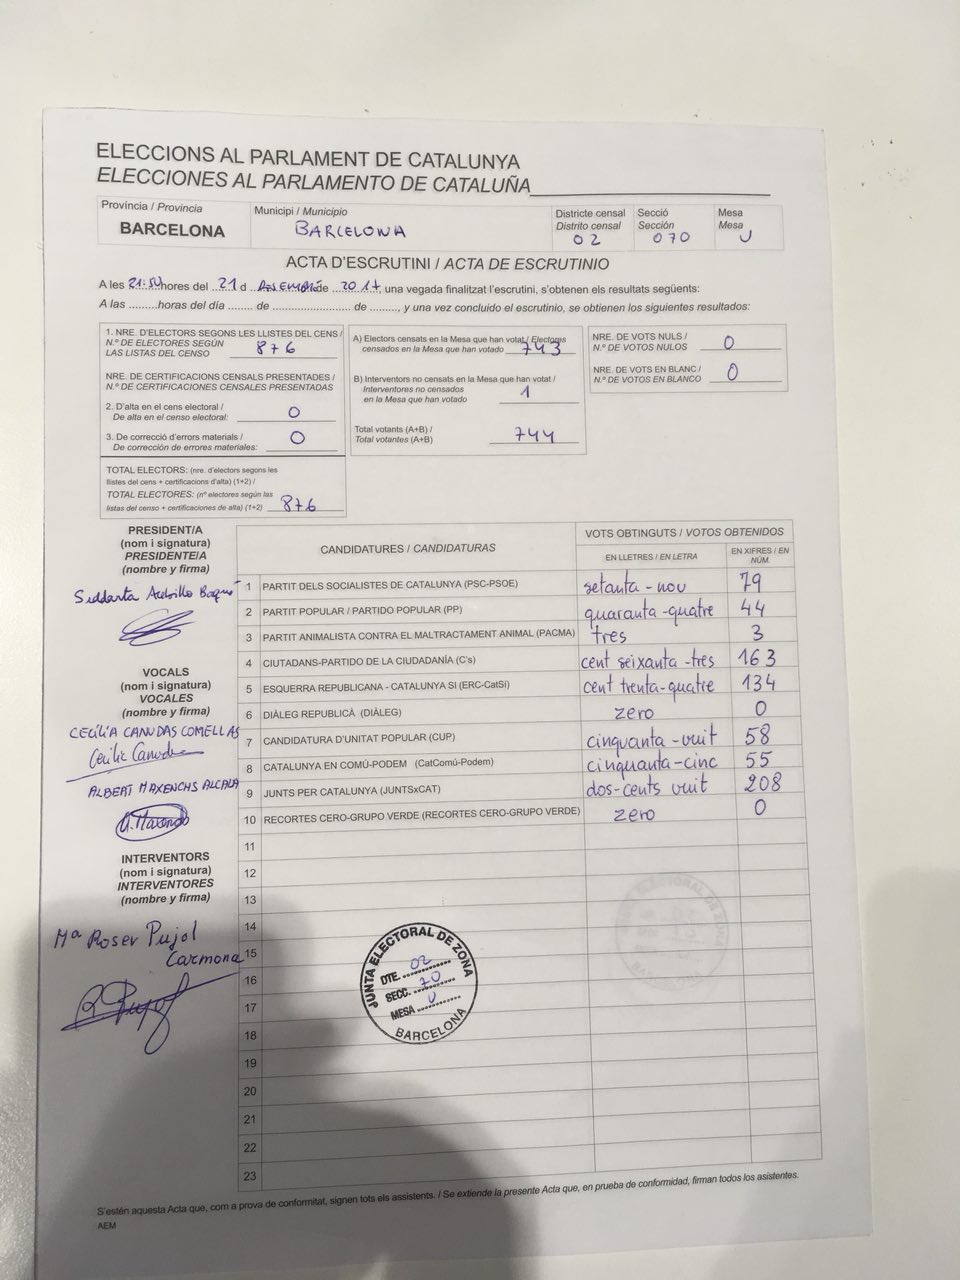 ELECCIONS AL PARLAMENT DE CATALUNYA
ELECCIONES AL PARLAMENTO DE CATALUÑA
Província / Provincia
BARCELONA
Municipi / Municipio
BARCELONA
Districte censal
Distrito censal
02
Secció
Sección
070
Mesa
Mesa
U
ACTA D'ESCRUTINI / ACTA DE ESCRUTINIO
A les 21:54 hores del 21 d DESEMBRE de 2017, una vegada finalitzat l'escrutini, s'obtenen els resultats següents:
A las .........horas del día ........ de ......................... de ........., y una vez concluido el escrutinio, se obtienen los siguientes resultados:
1. NRE. D'ELECTORS SEGONS LES LLISTES DEL CENS /
N.º DE ELECTORES SEGÚN
LAS LISTAS DEL CENSO 876
NRE. DE CERTIFICACIONS CENSALS PRESENTADES /
N.º DE CERTIFICACIONES CENSALES PRESENTADAS
2. D'alta en el cens electoral /
De alta en el censo electoral: 0
3. De correcció d'errors materials /
De corrección de errores materiales: 0
TOTAL ELECTORS: (nre. d'electors segons les
llistes del cens + certificacions d'alta) (1+2) /
TOTAL ELECTORES: (nº electores según las
listas del censo + certificaciones de alta) (1+2) 876
A) Electors censats en la Mesa que han votat / Electores
censados en la Mesa que han votado 743
B) Interventors no censats en la Mesa que han votat /
Interventores no censados
en la Mesa que han votado 1
Total votants (A+B) /
Total votantes (A+B) 744
NRE. DE VOTS NULS /
N.º DE VOTOS NULOS 0
NRE. DE VOTS EN BLANC /
N.º DE VOTOS EN BLANCO 0
PRESIDENT/A
(nom i signatura)
PRESIDENTE/A
(nombre y firma)
Siddarta
VOCALS
(nom i signatura)
VOCALES
(nombre y firma)
CECÍLIA CANUDAS COMELLAS
Cecília Canudas
ALBERT MAXENCHS ALCALA
INTERVENTORS
(nom i signatura)
INTERVENTORES
(nombre y firma)
Mª Roser Pujol
Carmona
CANDIDATURES / CANDIDATURAS
VOTS OBTINGUTS / VOTOS OBTENIDOS
EN LLETRES / EN LETRA
EN XIFRES / EN NÚM.
1 PARTIT DELS SOCIALISTES DE CATALUNYA (PSC-PSOE) setanta-nou 79
2 PARTIT POPULAR / PARTIDO POPULAR (PP) quaranta-quatre 44
3 PARTIT ANIMALISTA CONTRA EL MALTRACTAMENT ANIMAL (PACMA) tres 3
4 CIUTADANS-PARTIDO DE LA CIUDADANÍA (C's) cent seixanta-tres 163
5 ESQUERRA REPUBLICANA - CATALUNYA SI (ERC-CatSí) cent trenta-quatre 134
6 DIÀLEG REPUBLICÀ (DIÀLEG) zero 0
7 CANDIDATURA D'UNITAT POPULAR (CUP) cinquanta-vuit 58
8 CATALUNYA EN COMÚ-PODEM (CatComú-Podem) cinquanta-cinc 55
9 JUNTS PER CATALUNYA (JUNTSxCAT) dos-cents vuit 208
10 RECORTES CERO-GRUPO VERDE (RECORTES CERO-GRUPO VERDE) zero 0
11
12
13
14
15
16
17
18
19
20
21
22
23
JUNTA ELECTORAL DE ZONA
DTE. 02
SECC. 70
MESA U
BARCELONA
S'estén aquesta Acta que, com a prova de conformitat, signen tots els assistents. / Se extiende la presente Acta que, en prueba de conformidad, firman todos los asistentes.
AEM